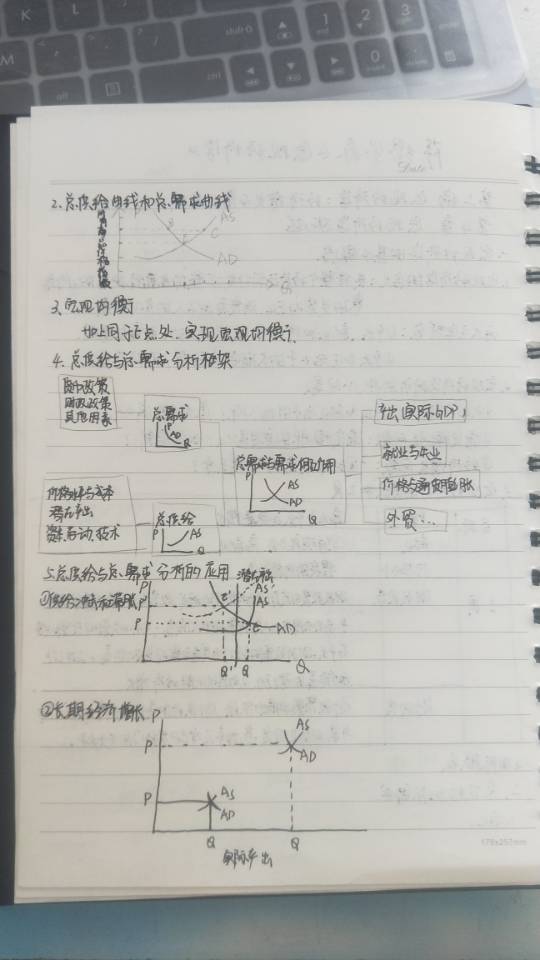 2.总供给曲线和总需求曲线
AS
B
C
E
AD
3.宏观均衡
如上图于E点处,实现宏观均衡.
4.总供给与总需求分析框架
货币政策
财政政策
其他因素
总需求
P
AD
Q
产出(实际GDP)
就业与失业
价格与通货膨胀
外贸...
P
AS
AD
Q
价格水平与成本
潜在产出
资本,劳动,技术
总供给
P
AS
Q
5.总供给与总需求分析的应用
①供给冲击与滞胀
潜在产出
P
P'
P
E'
AS'
AS
E
AD
Q'
Q
Q
②长期经济增长
P
P
AS
AD
P
AS
AD
Q
Q
实际产出
176x250mm